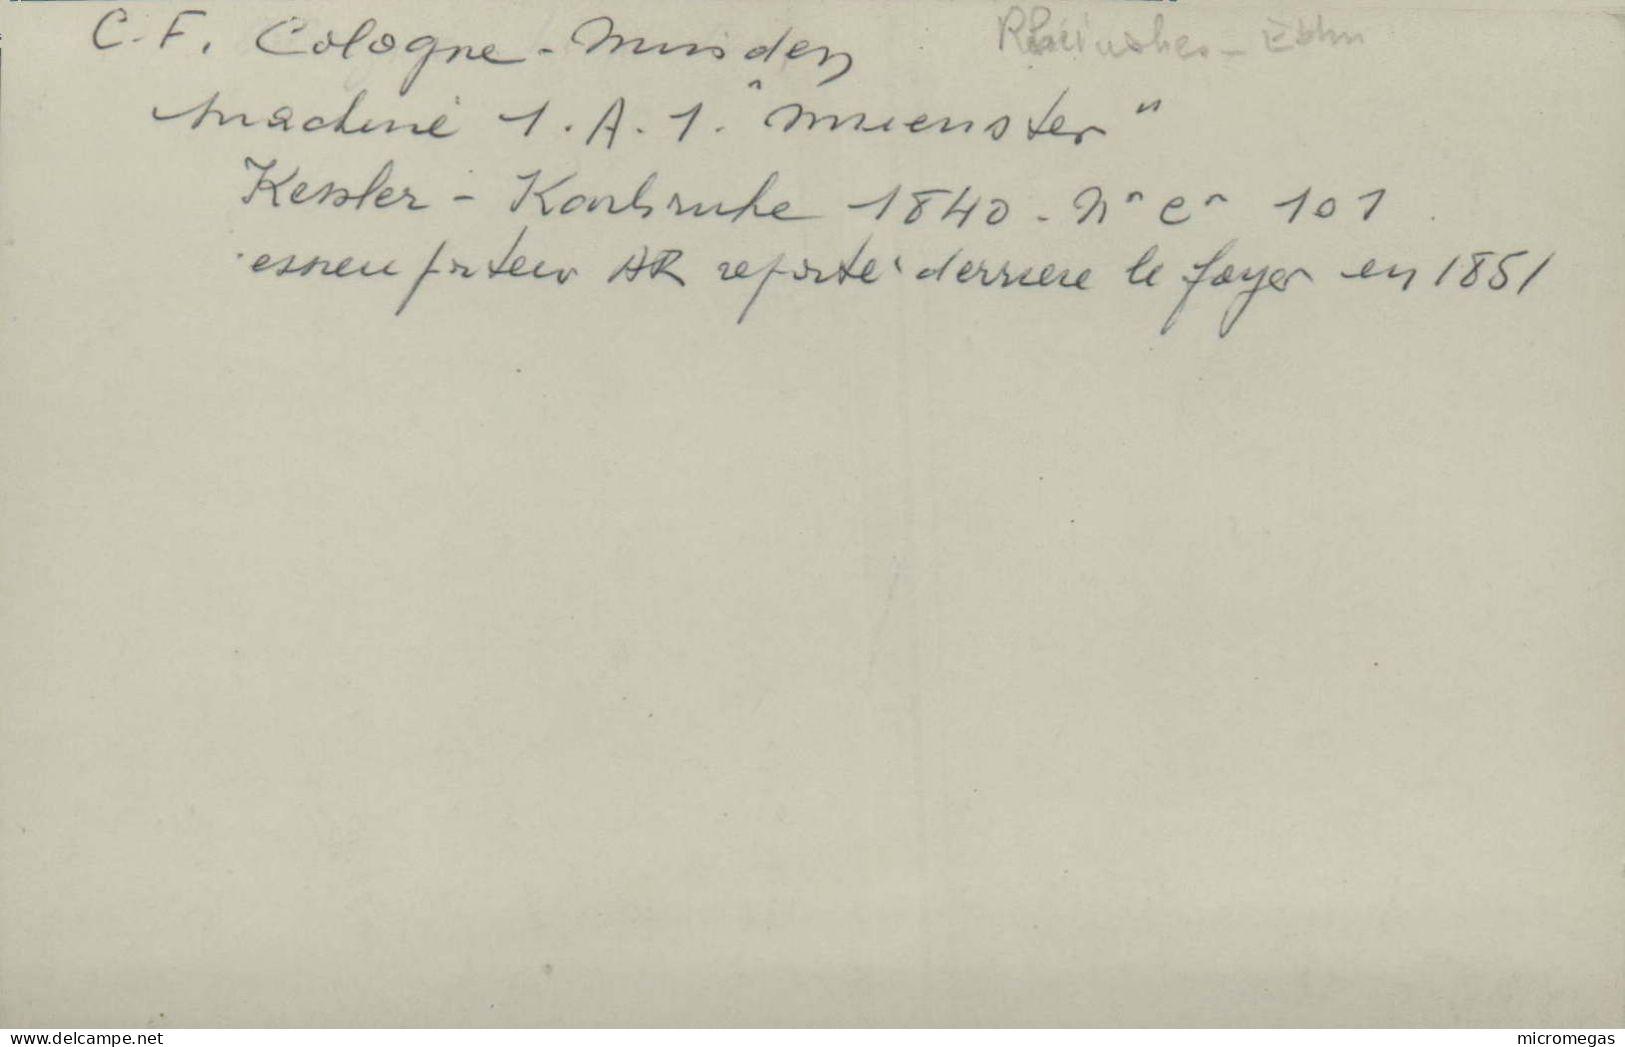 C.F. Cologne - Minden
machine 1.A.1. "Muenster"
Kessler - Karlsruhe 1840 - N° C° 101
essieu porteur AR reporté derriere le foyer en 1851
delcampe.net
micromegas